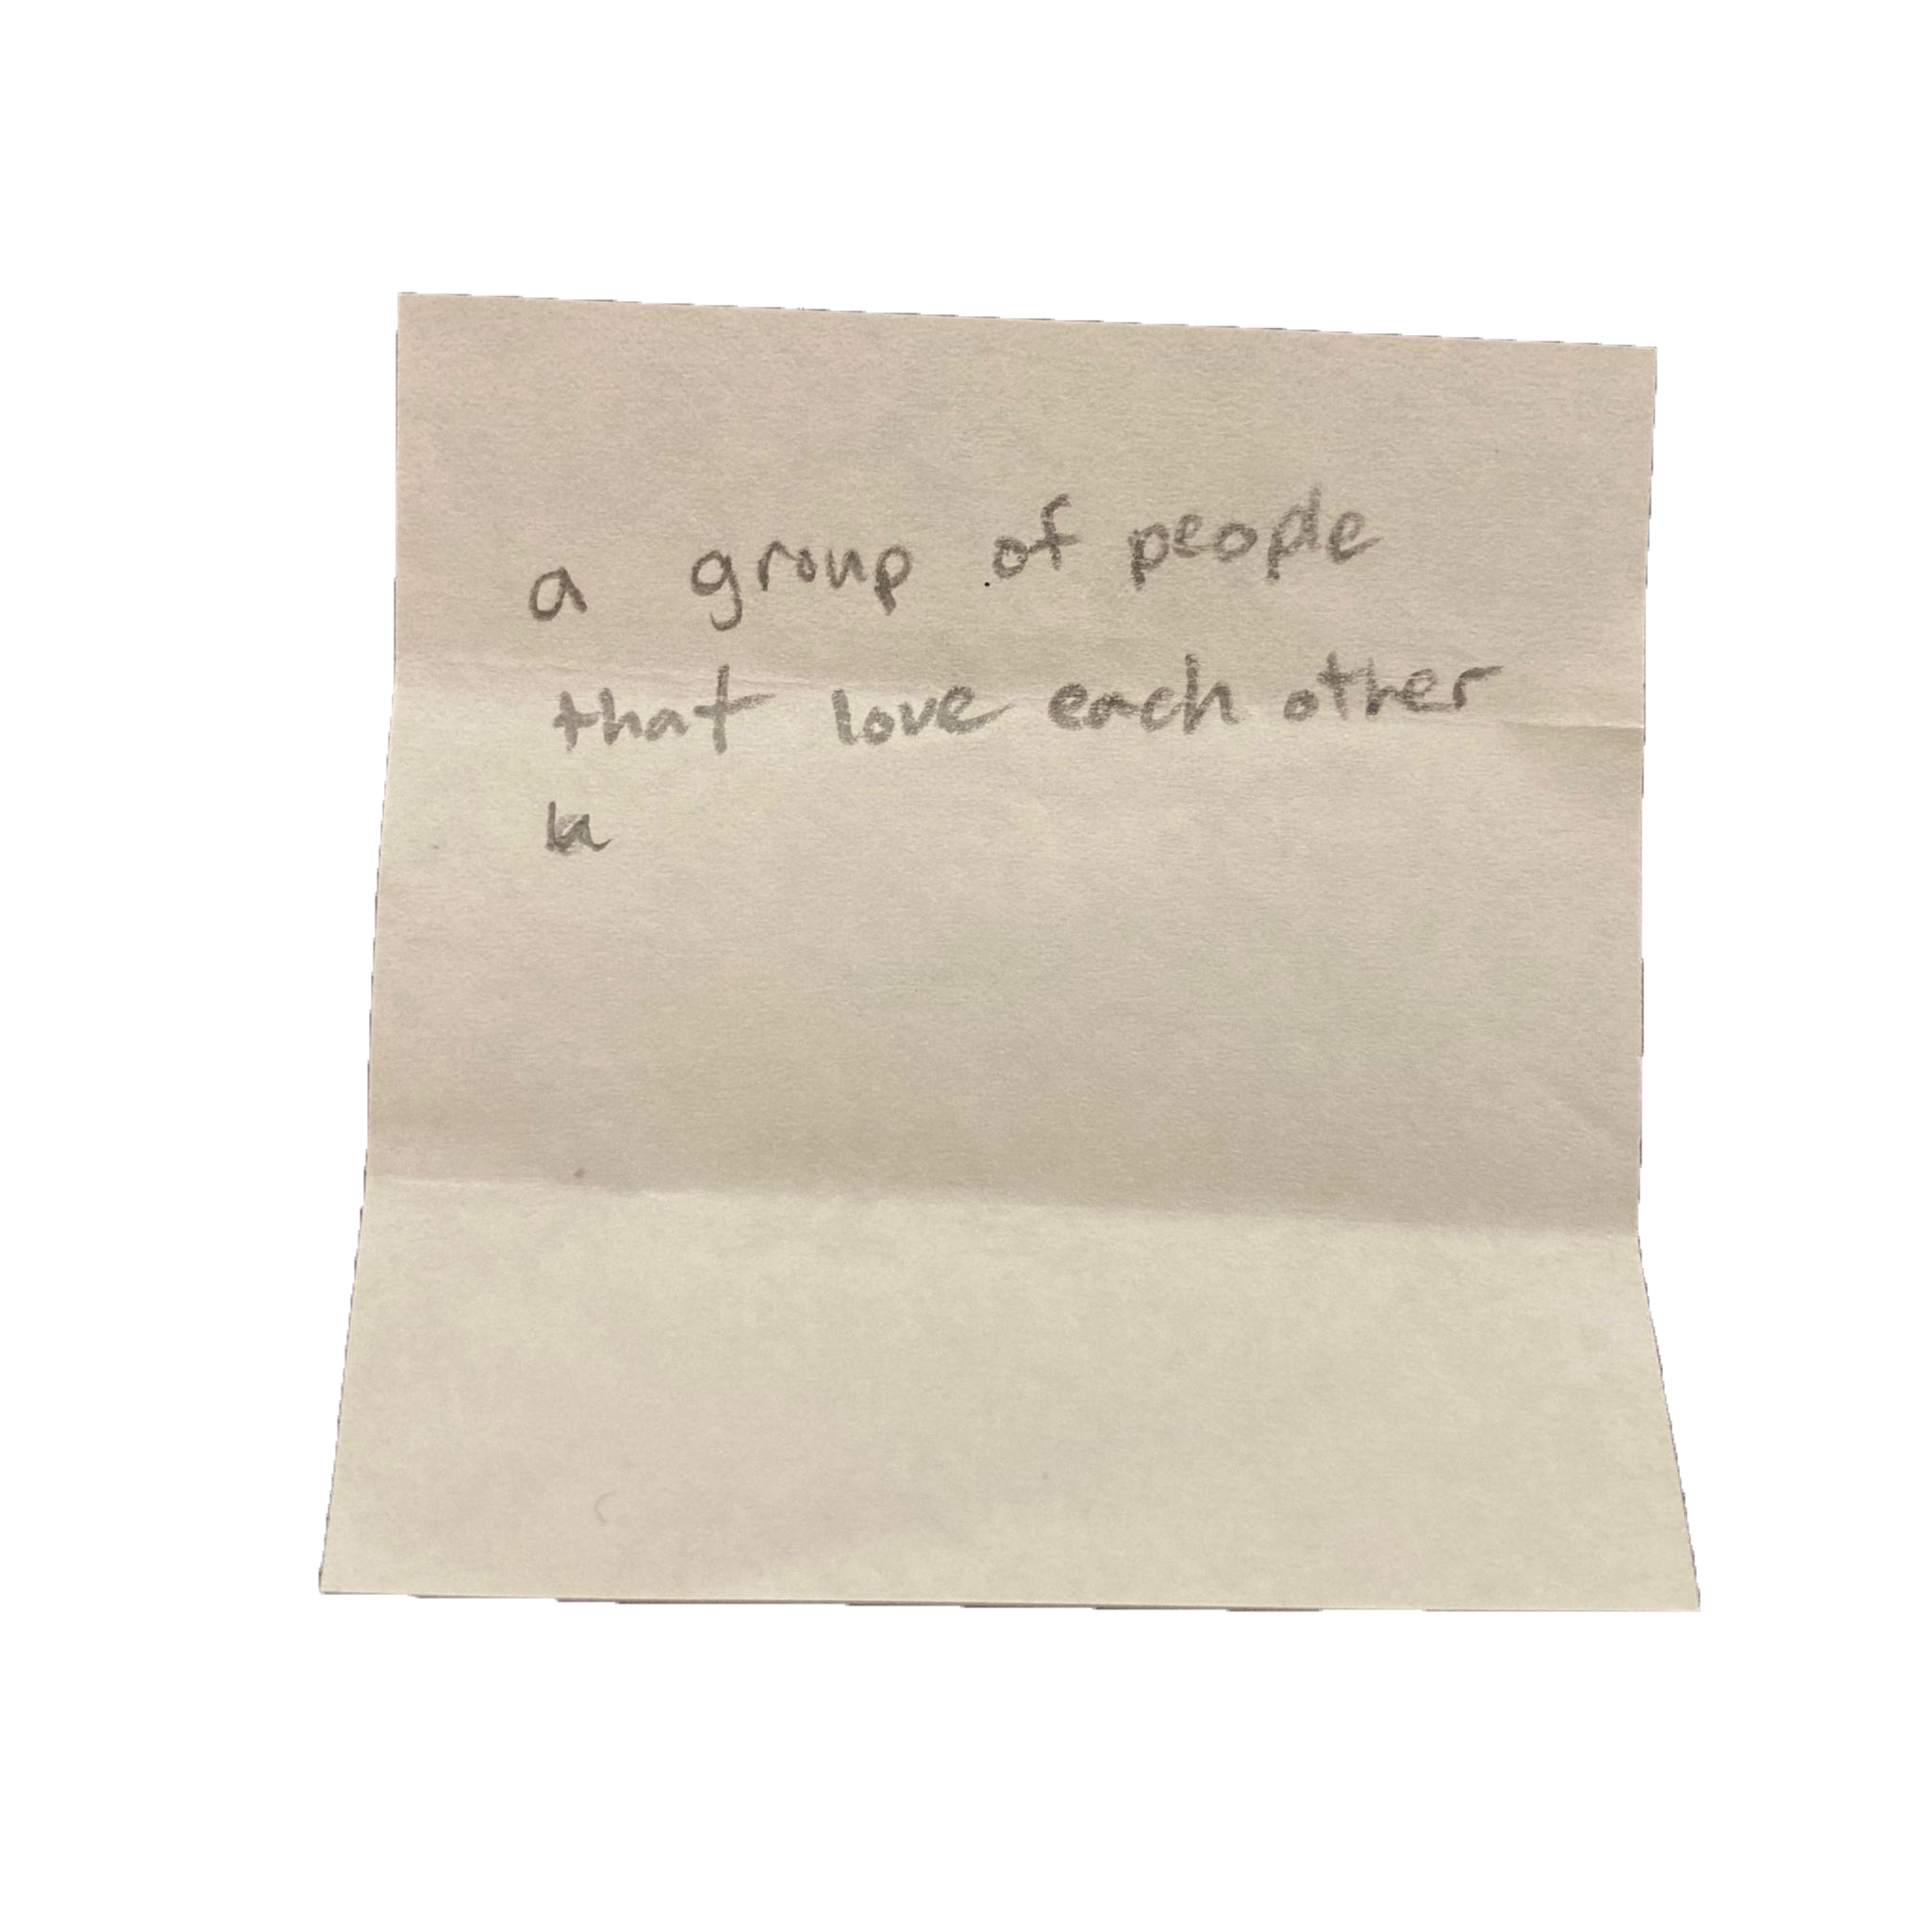 a group of people
that love each other